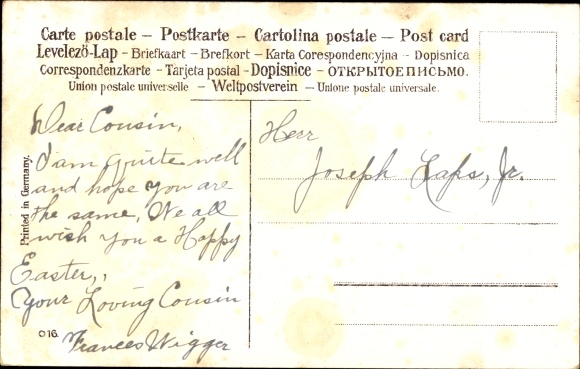 Carte postale – Postkarte – Cartolina postale – Post card
Levelező-Lap – Briefkaart – Brefkort – Karta Corespondencyjna – Dopisnica
Correspondenzkarte – Tarjeta postal – Dopisnice – ОТКРЫТОЕ ПИСЬМО.
Union postale universelle – Weltpostverein – Unione postale universale.
Dear Cousin,
I am quite well
and hope you are
the same, We all
wish you a Happy
Easter,,
Your Loving Cousin
Frances Wigger
Herr
Joseph Laps, Jr.
Printed in Germany.
O 16.